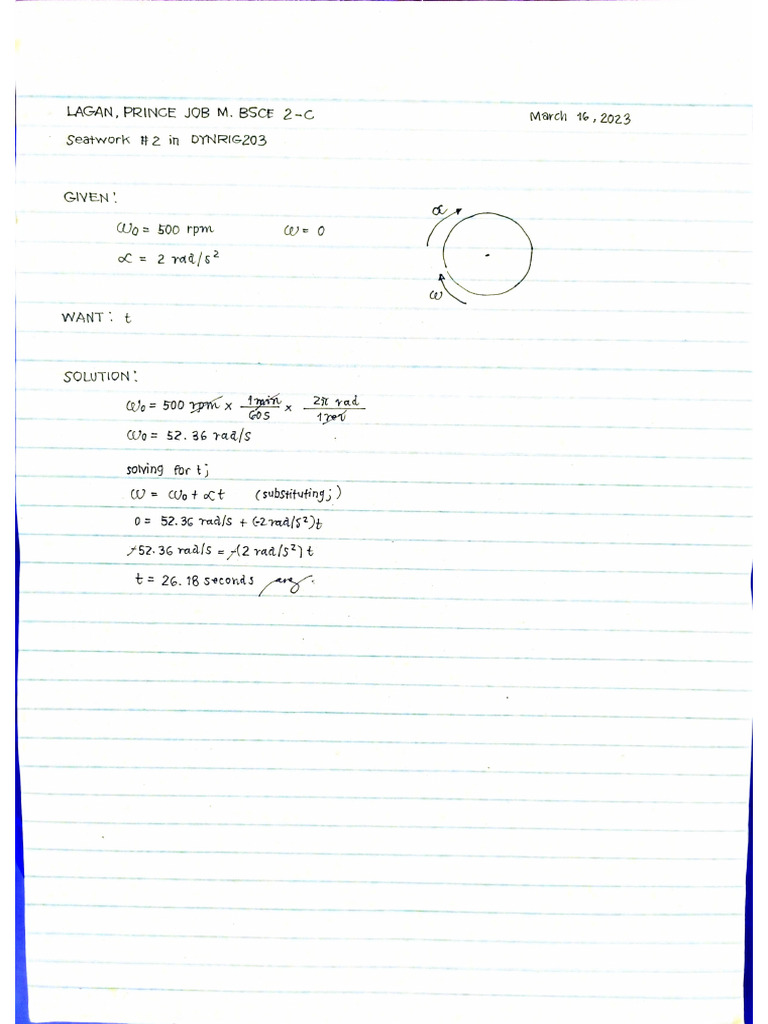 LAGAN, PRINCE JOB M. BSCE 2-C
March 16, 2023
Seatwork #2 in DYNRIG203
GIVEN:
ω₀ = 500 rpm ω = 0
α = 2 rad/s²
α
ω
WANT: t
SOLUTION:
ω₀ = 500 rpm x 1min/60s x 2π rad/1rev
ω₀ = 52.36 rad/s
solving for t;
ω = ω₀ + αt (substituting;)
0 = 52.36 rad/s + (-2 rad/s²)t
-52.36 rad/s = -(2 rad/s²) t
t = 26.18 seconds